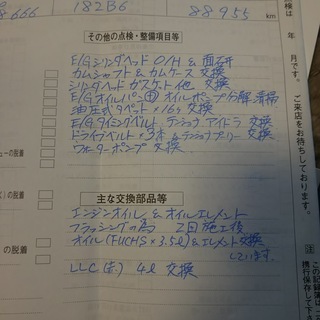 8666 182B6 88955 km
その他の点検・整備項目等
E/Gシリンダヘッド O/H & 面研
カムシャフト & カムケース 交換
シリンダヘッド ガスケット他 交換
E/Gオイルパン オイルポンプ分解清掃
油圧式タペット ×16ヶ 交換
E/Gタイミングベルト テンショナ アイドラ 交換
ドライブベルト×3本 & テンショナプーリー 交換
ウォーターポンプ 交換
主な交換部品等
エンジンオイル & オイルエレメント
フラッシングの為 2回施工後
オイル(FUCHS×3.5ℓ)&エレメント交換
しています。
LLC(赤) 4ℓ 交換
ューの脱着
の脱着
の脱着
検は 年 月です。
ご来店をお待ちしております。
注
この記録簿は
携行保存して下